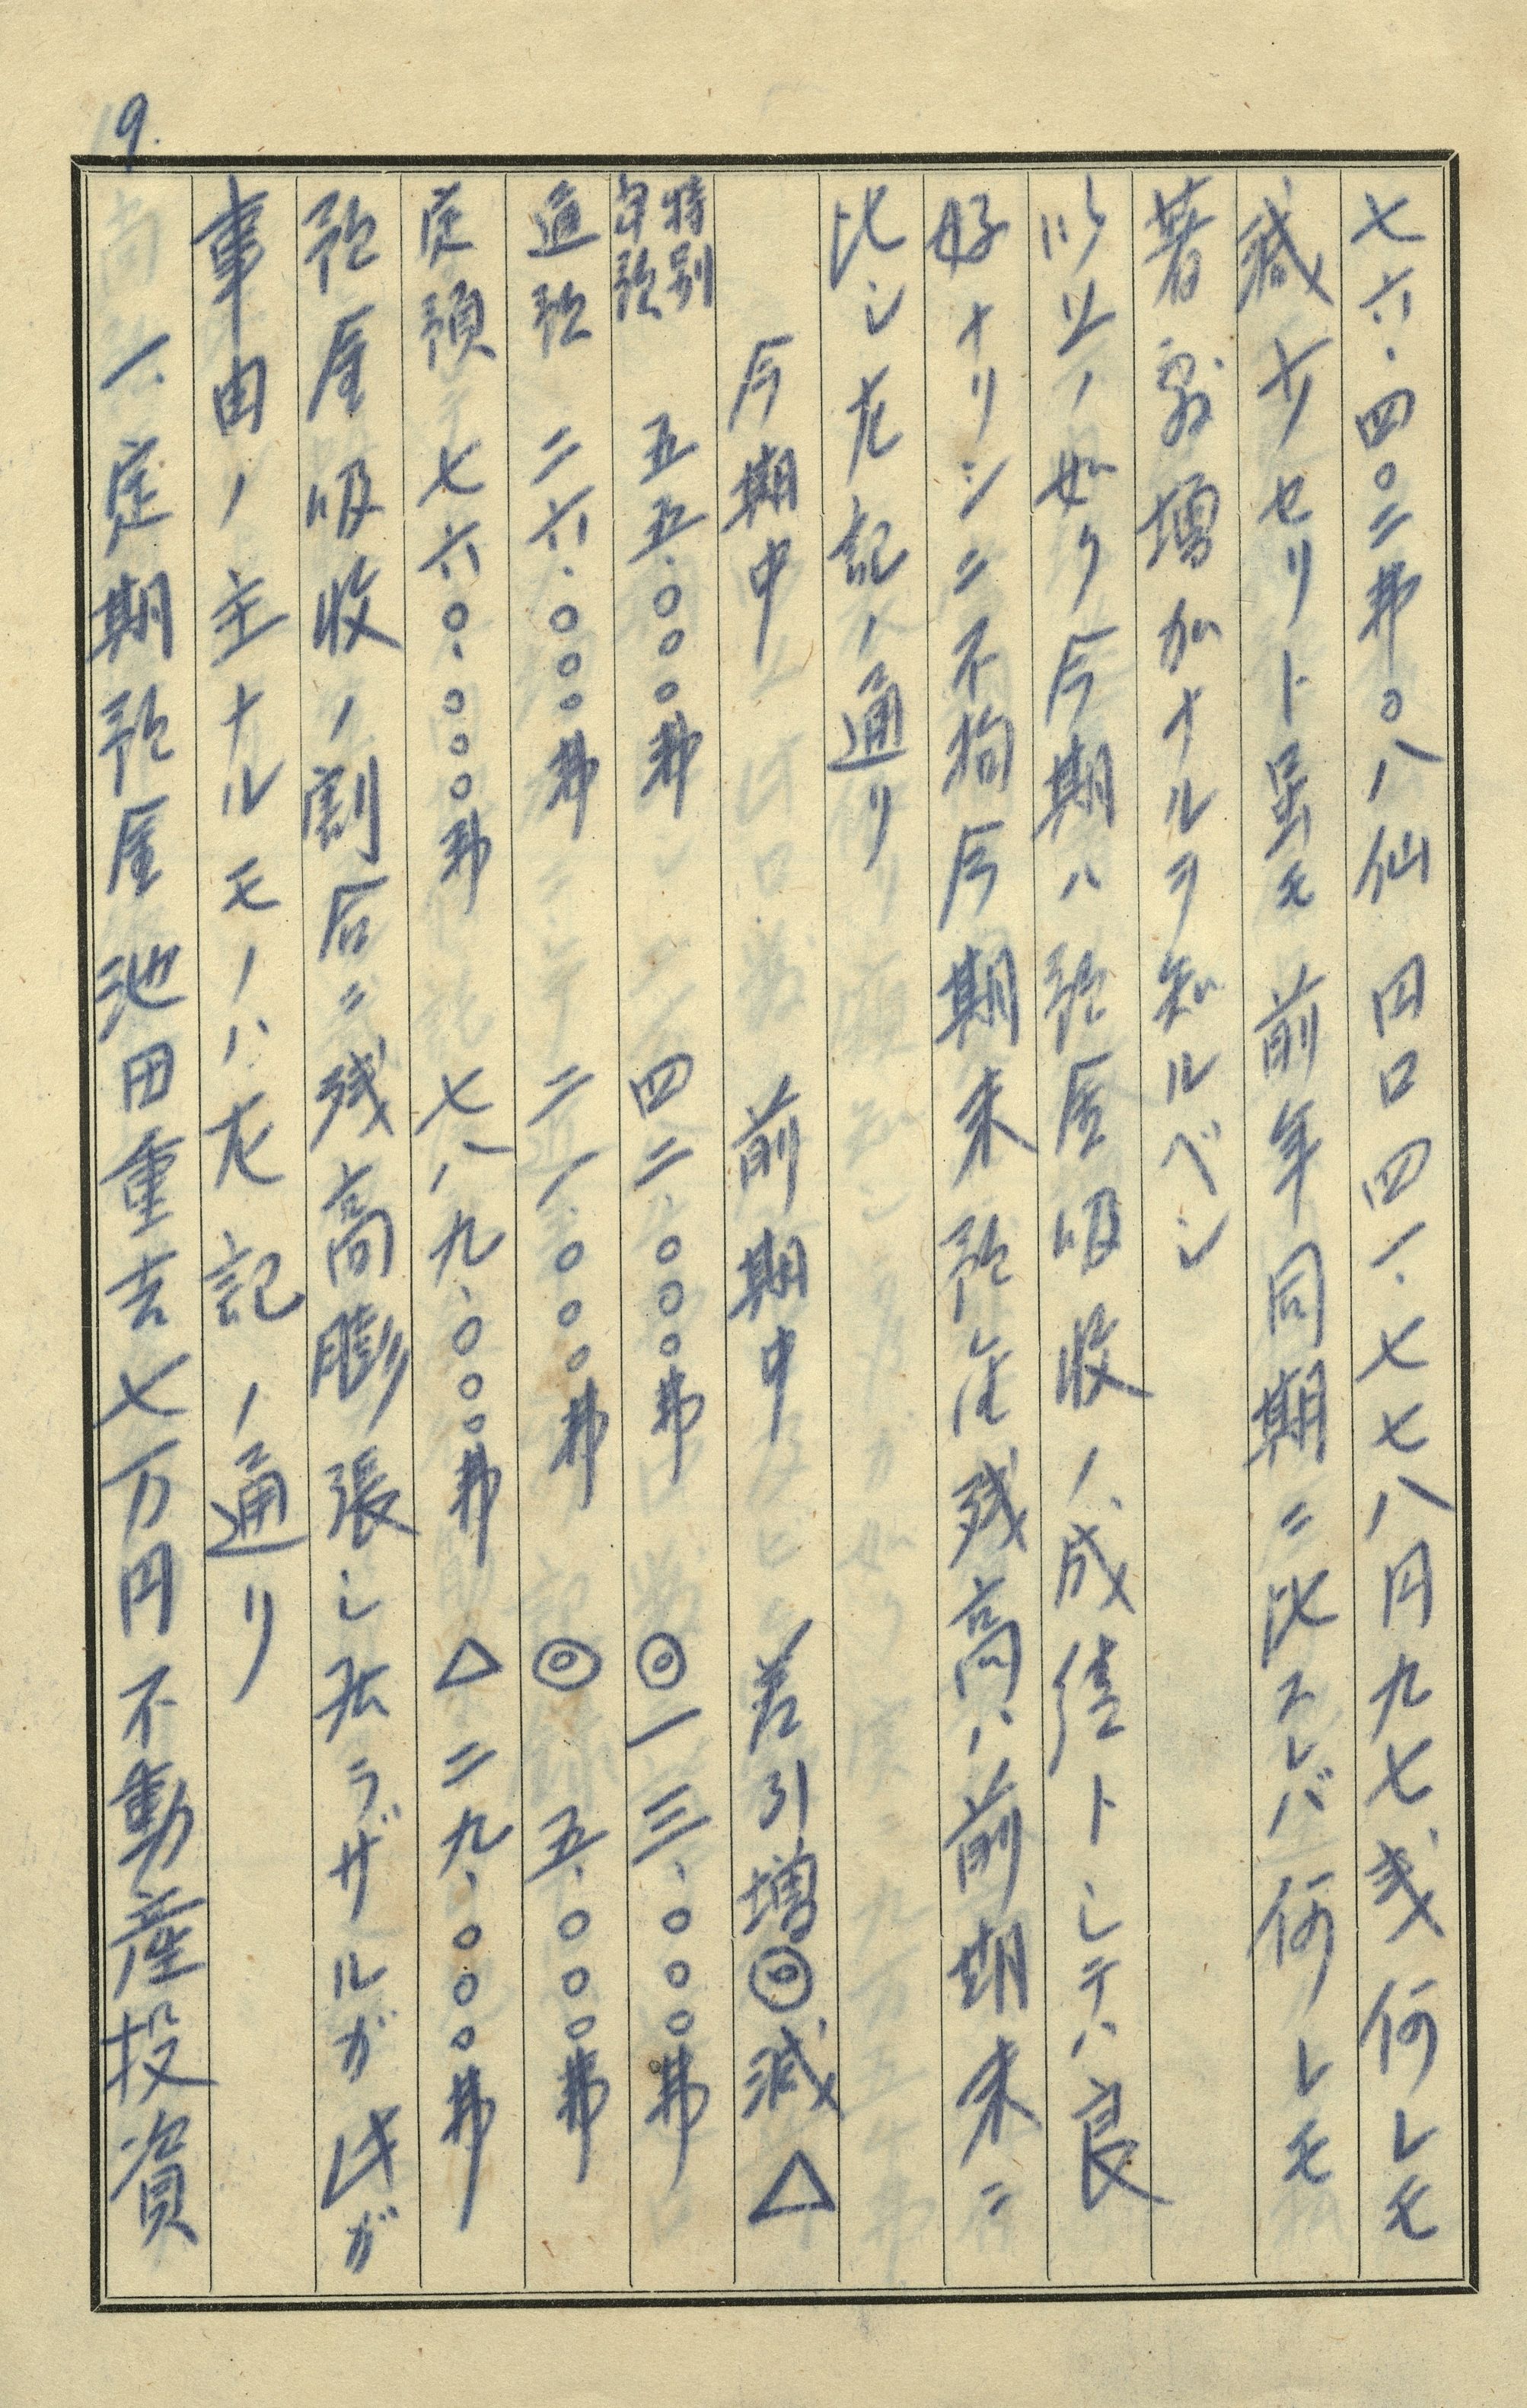 9.
七六.四〇二弗〇八仙 四口 四一.七七八円九七 或何レモ
減少セリト虽モ前年同期ニ比スレバ何レモ
著ル増加ナルヲ知ルベシ
以上ノ如ク今期ハ預金吸收ノ成績トシテハ良
好ナリシニ不拘今期末預金残高ハ前期末ニ
比シ左記ノ通リ
今期中 前期中 差引増◎減△
特別当預 五五.〇〇〇弗 四二.〇〇〇弗 ◎一三、〇〇〇弗
通預 二六.〇〇〇弗 二一.〇〇〇弗 ◎ 五、〇〇〇弗
定預 七六〇.〇〇〇弗 七八九、〇〇〇弗 △二九、〇〇〇弗
預金吸收ノ割合ニ残高膨張シ居ラザルガ此ガ
事由ノ主ナルモノハ左記ノ通リ
一、定期預金池田重吉七万円不動産投資